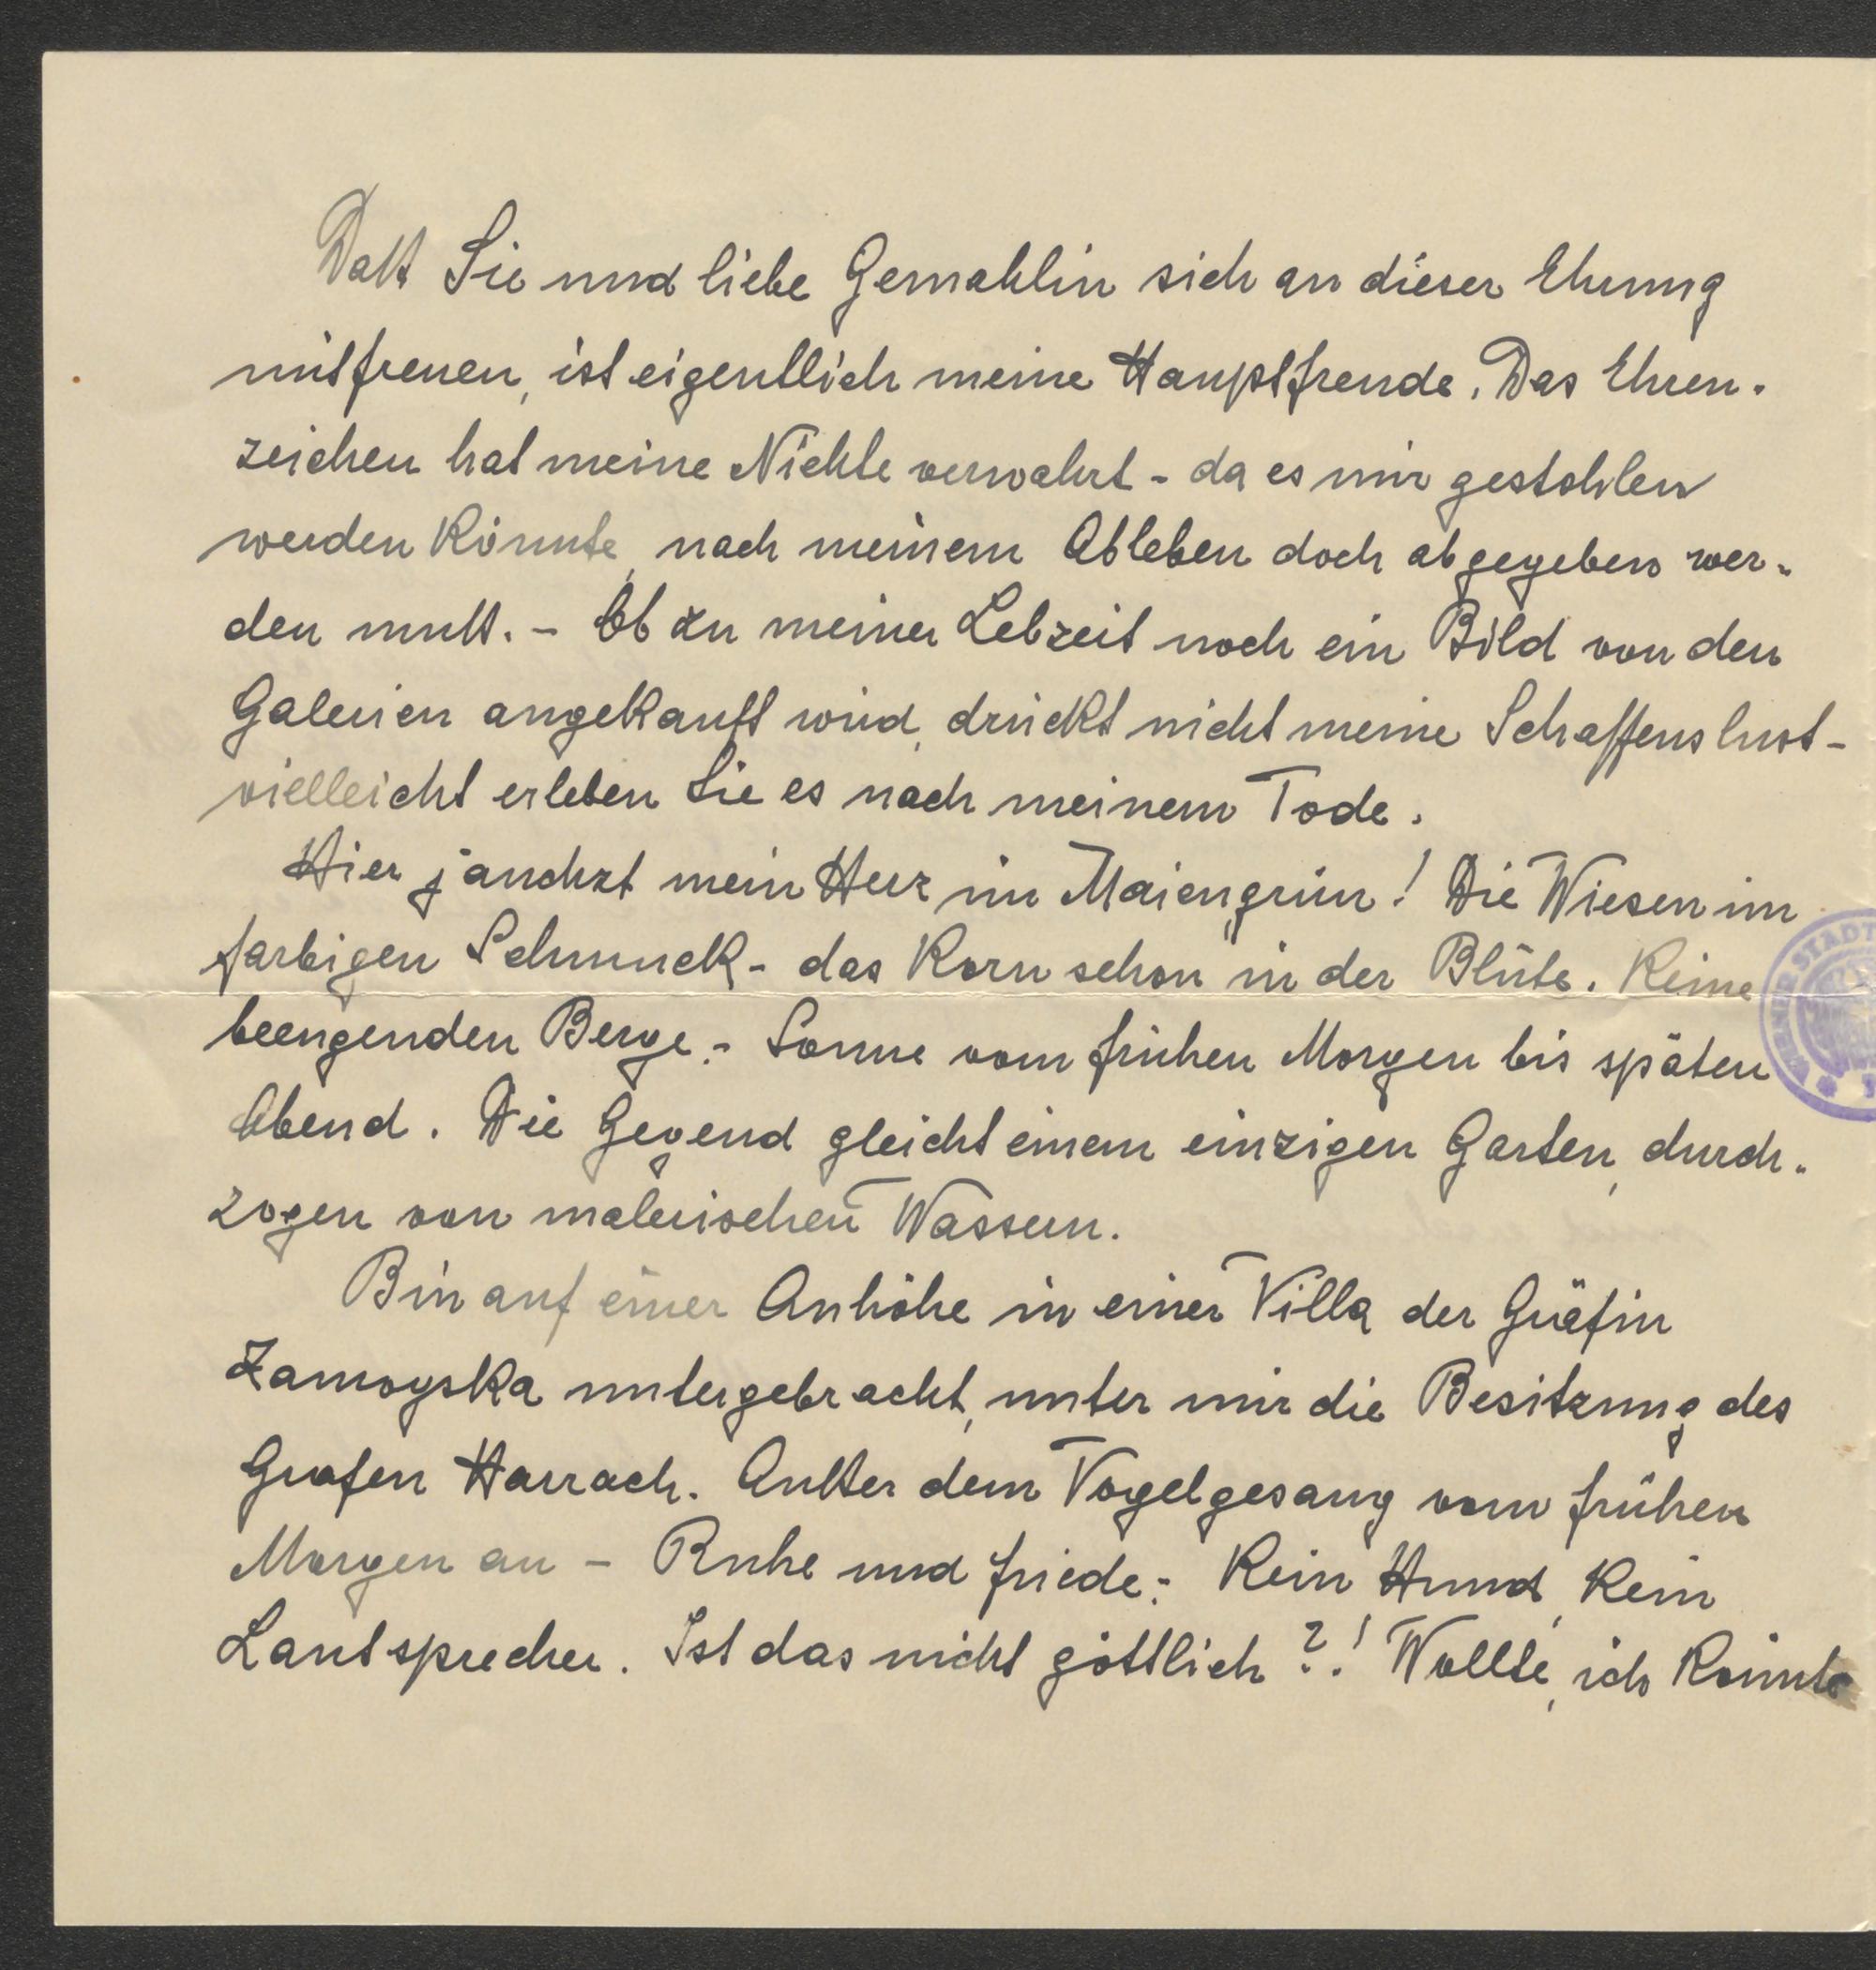 Daß Sie und liebe Gemahlin sich an dieser Ehrung
mitfreuen, ist eigentlich meine Hauptfreude. Das Ehren-
zeichen hat meine Nichte verwahrt - da es mir gestohlen
werden könnte, nach meinem Ableben doch abgegeben wer-
den muß. - Ob zu meiner Lebzeit noch ein Bild von den
Galerien angekauft wird, drückt nicht meine Schaffenslust -
vielleicht erleben Sie es nach meinem Tode.
Hier jauchzt mein Herz im Maiengrün! Die Wiesen im
farbigen Schmuck - das Korn schon in der Blüte. Keine
beengenden Berge. - Sonne vom frühen Morgen bis späten
Abend. Die Gegend gleicht einem einzigen Garten, durch-
zogen von malerischen Wassern.
Bin auf einer Anhöhe in einer Villa der Gräfin
Zamoyska untergebracht, unter mir die Besitzung des
Grafen Harrach. Außer dem Vogelgesang vom frühen
Morgen an - Ruhe und Friede. - Kein Hund, kein
Lautsprecher. Ist das nicht göttlich?! Wollte, ich könnte
STADT